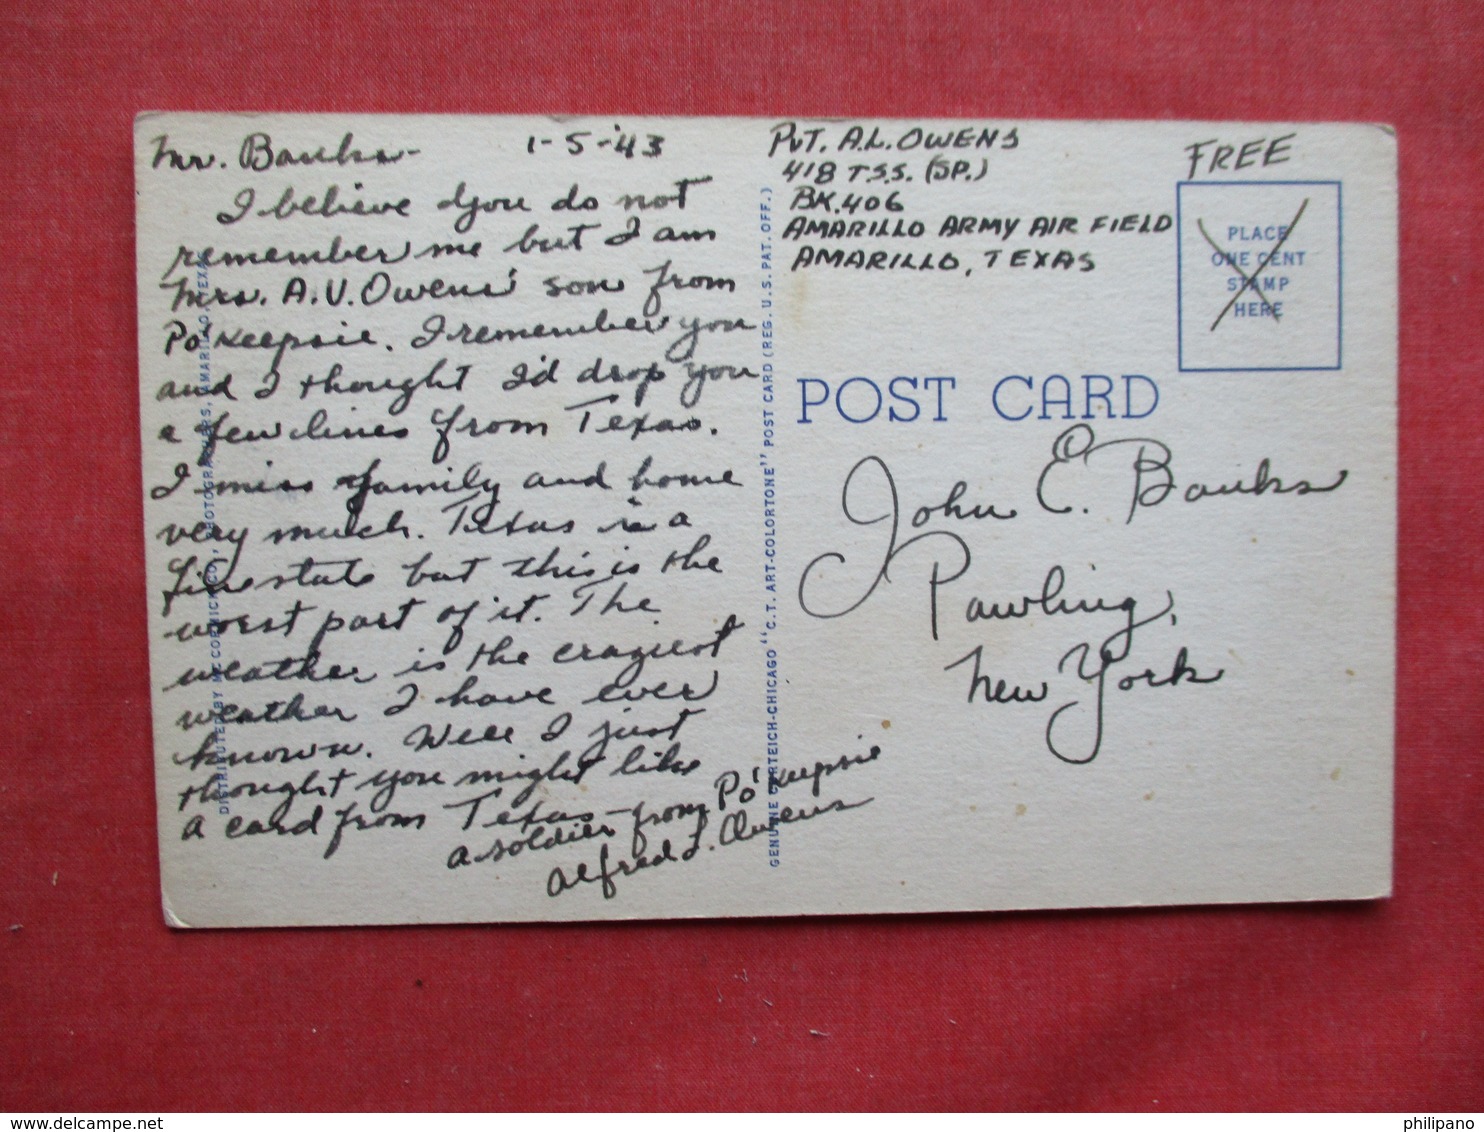 Mr. Banks- 1-5-'43
I believe you do not
remember me but I am
Mrs. A.V. Owens' son from
Po'Keepsie. I remember you
and I thought I'd drop you
a few lines from Texas.
I miss family and home
very much. Texas is a
fine state but this is the
worst part of it. The
weather is the craziest
weather I have ever
known. Well I just
thought you might like
a card from Texas - from Po'keepsie
a soldier
Alfred L. Owens
DISTRIBUTED BY McCORMICK CO., PHOTOGRAPHERS, AMARILLO, TEXAS
GENUINE CURTEICH-CHICAGO "C.T. ART-COLORTONE" POST CARD (REG. U.S. PAT. OFF.)
PVT. A.L. OWENS
418 T.S.S. (SP.)
BK. 406
AMARILLO ARMY AIR FIELD
AMARILLO, TEXAS
FREE
PLACE
ONE CENT
STAMP
HERE
POST CARD
John E. Banks
Pawling,
New York
philipano
delcampe.net